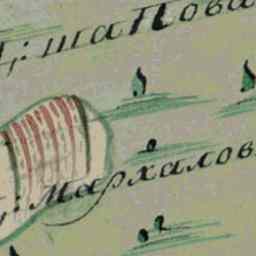 д; шапова
д; Мархалов